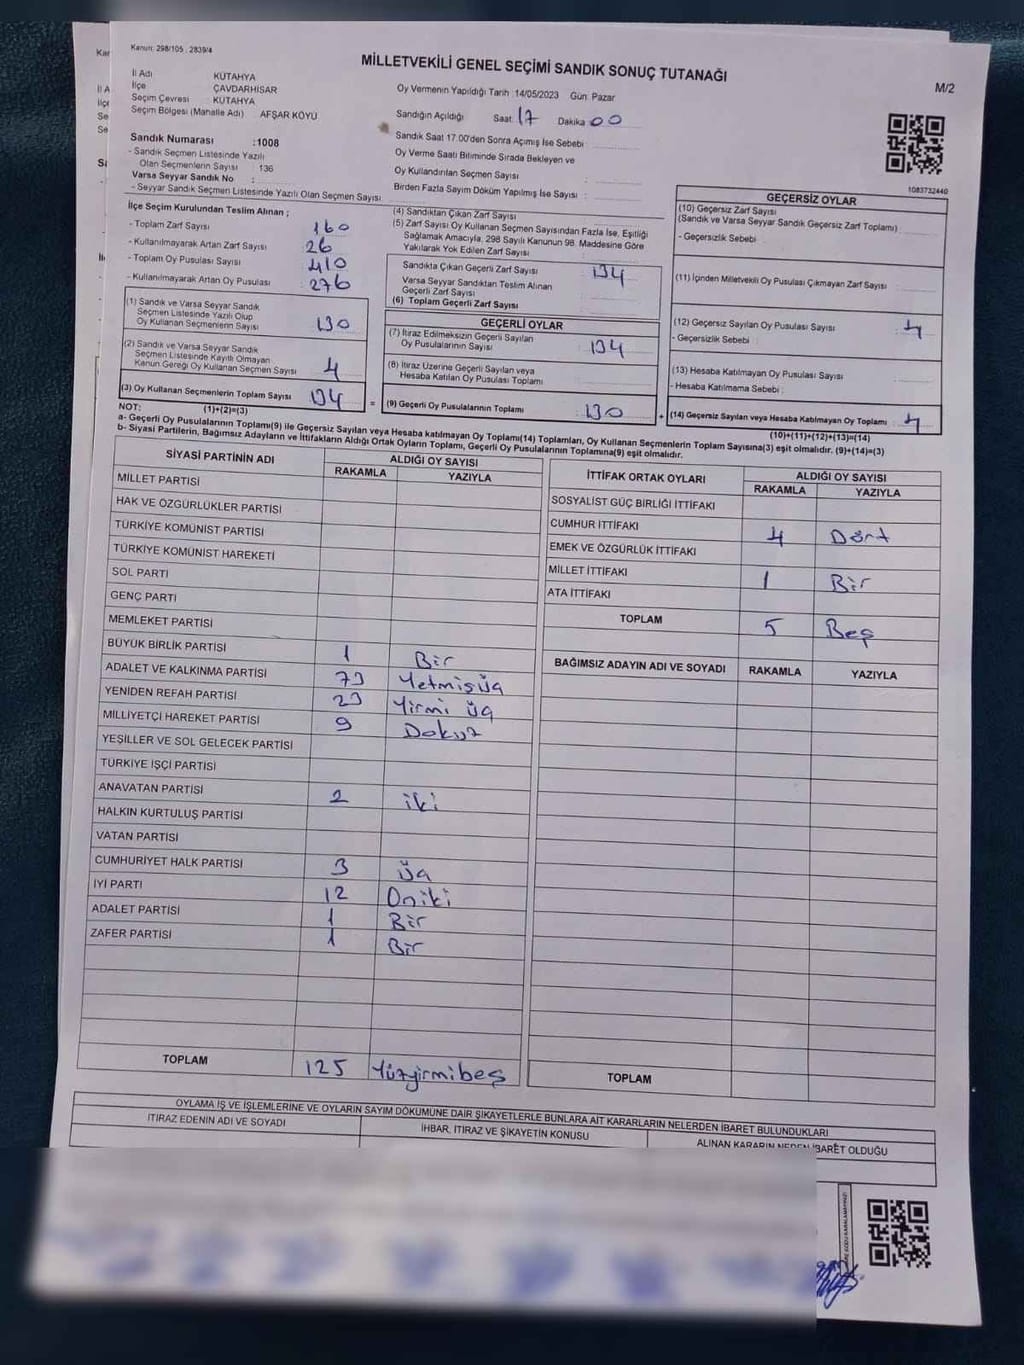 Kanun: 298/105 , 2839/4
MİLLETVEKİLİ GENEL SEÇİMİ SANDIK SONUÇ TUTANAĞI
M/2
İl Adı KÜTAHYA
İlçe ÇAVDARHİSAR
Seçim Çevresi KÜTAHYA
Seçim Bölgesi (Mahalle Adı) AFŞAR KÖYÜ
Oy Vermenin Yapıldığı Tarih :14/05/2023 Gün: Pazar
Sandığın Açıldığı Saat: 17 Dakika 00
Sandık Saat 17.00'den Sonra Açımış İse Sebebi
Oy Verme Saati Bitiminde Sırada Bekleyen ve
Oy Kullandırılan Seçmen Sayısı :
Birden Fazla Sayım Döküm Yapılmış İse Sayısı :
Sandık Numarası :1008
- Sandık Seçmen Listesinde Yazılı
Olan Seçmenlerin Sayısı : 136
Varsa Seyyar Sandık No :
- Seyyar Sandık Seçmen Listesinde Yazılı Olan Seçmen Sayısı
1083732440
İlçe Seçim Kurulundan Teslim Alınan ;
- Toplam Zarf Sayısı 160
- Kullanılmayarak Artan Zarf Sayısı 26
- Toplam Oy Pusulası Sayısı 410
- Kullanılmayarak Artan Oy Pusulası : 276
(1) Sandık ve Varsa Seyyar Sandık
Seçmen Listesinde Yazılı Olup
Oy Kullanan Seçmenlerin Sayısı 130
(2) Sandık ve Varsa Seyyar Sandık
Seçmen Listesinde Kayıtlı Olmayan
Kanun Gereği Oy Kullanan Seçmen Sayısı 4
(3) Oy Kullanan Seçmenlerin Toplam Sayısı 134
(1)+(2)=(3)
(4) Sandıktan Çıkan Zarf Sayısı
(5) Zarf Sayısı Oy Kullanan Seçmen Sayısından Fazla İse, Eşitliği
Sağlamak Amacıyla, 298 Sayılı Kanunun 98. Maddesine Göre
Yakılarak Yok Edilen Zarf Sayısı
Sandıkta Çıkan Geçerli Zarf Sayısı : 134
Varsa Seyyar Sandıktan Teslim Alınan
Geçerli Zarf Sayısı
(6) Toplam Geçerli Zarf Sayısı
GEÇERLİ OYLAR
(7) İtiraz Edilmeksizin Geçerli Sayılan
Oy Pusulalarının Sayısı : 134
(8) İtiraz Üzerine Geçerli Sayılan veya
Hesaba Katılan Oy Pusulası Toplamı
= (9) Geçerli Oy Pusulalarının Toplamı 130
GEÇERSİZ OYLAR
(10) Geçersiz Zarf Sayısı
(Sandık ve Varsa Seyyar Sandık Geçersiz Zarf Toplamı)
- Geçersizlik Sebebi
(11) İçinden Milletvekili Oy Pusulası Çıkmayan Zarf Sayısı
(12) Geçersiz Sayılan Oy Pusulası Sayısı : 4
- Geçersizlik Sebebi
(13) Hesaba Katılmayan Oy Pusulası Sayısı
- Hesaba Katılmama Sebebi :
+ (14) Geçersiz Sayılan veya Hesaba Katılmayan Oy Toplamı : 4
(10)+(11)+(12)+(13)=(14)
NOT:
a- Geçerli Oy Pusulalarının Toplamı(9) ile Geçersiz Sayılan veya Hesaba katılmayan Oy Toplamı(14) Toplamları, Oy Kullanan Seçmenlerin Toplam Sayısına(3) eşit olmalıdır. (9)+(14)=(3)
b- Siyasi Partilerin, Bağımsız Adayların ve İttifakların Aldığı Ortak Oyların Toplamı, Geçerli Oy Pusulalarının Toplamına(9) eşit olmalıdır.
SİYASİ PARTİNİN ADI ALDIĞI OY SAYISI
RAKAMLA YAZIYLA
MİLLET PARTİSİ
HAK VE ÖZGÜRLÜKLER PARTİSİ
TÜRKİYE KOMÜNİST PARTİSİ
TÜRKİYE KOMÜNİST HAREKETİ
SOL PARTİ
GENÇ PARTİ
MEMLEKET PARTİSİ
BÜYÜK BİRLİK PARTİSİ 1 Bir
ADALET VE KALKINMA PARTİSİ 73 Yetmişüç
YENİDEN REFAH PARTİSİ 23 Yirmi üç
MİLLİYETÇİ HAREKET PARTİSİ 9 Dokuz
YEŞİLLER VE SOL GELECEK PARTİSİ
TÜRKİYE İŞÇİ PARTİSİ
ANAVATAN PARTİSİ 2 iki
HALKIN KURTULUŞ PARTİSİ
VATAN PARTİSİ
CUMHURİYET HALK PARTİSİ 3 üç
İYİ PARTİ 12 Oniki
ADALET PARTİSİ 1 Bir
ZAFER PARTİSİ 1 Bir
TOPLAM 125 Yüzyirmibeş
İTTİFAK ORTAK OYLARI ALDIĞI OY SAYISI
RAKAMLA YAZIYLA
SOSYALİST GÜÇ BİRLİĞİ İTTİFAKI
CUMHUR İTTİFAKI 4 Dört
EMEK VE ÖZGÜRLÜK İTTİFAKI
MİLLET İTTİFAKI 1 Bir
ATA İTTİFAKI
TOPLAM 5 Beş
BAĞIMSIZ ADAYIN ADI VE SOYADI RAKAMLA YAZIYLA
TOPLAM
OYLAMA İŞ VE İŞLEMLERİNE VE OYLARIN SAYIM DÖKÜMÜNE DAİR ŞİKAYETLERLE BUNLARA AİT KARARLARIN NELERDEN İBARET BULUNDUKLARI
İTİRAZ EDENİN ADI VE SOYADI İHBAR, İTİRAZ VE ŞİKAYETİN KONUSU ALINAN KARARIN NEDEN İBARET OLDUĞU